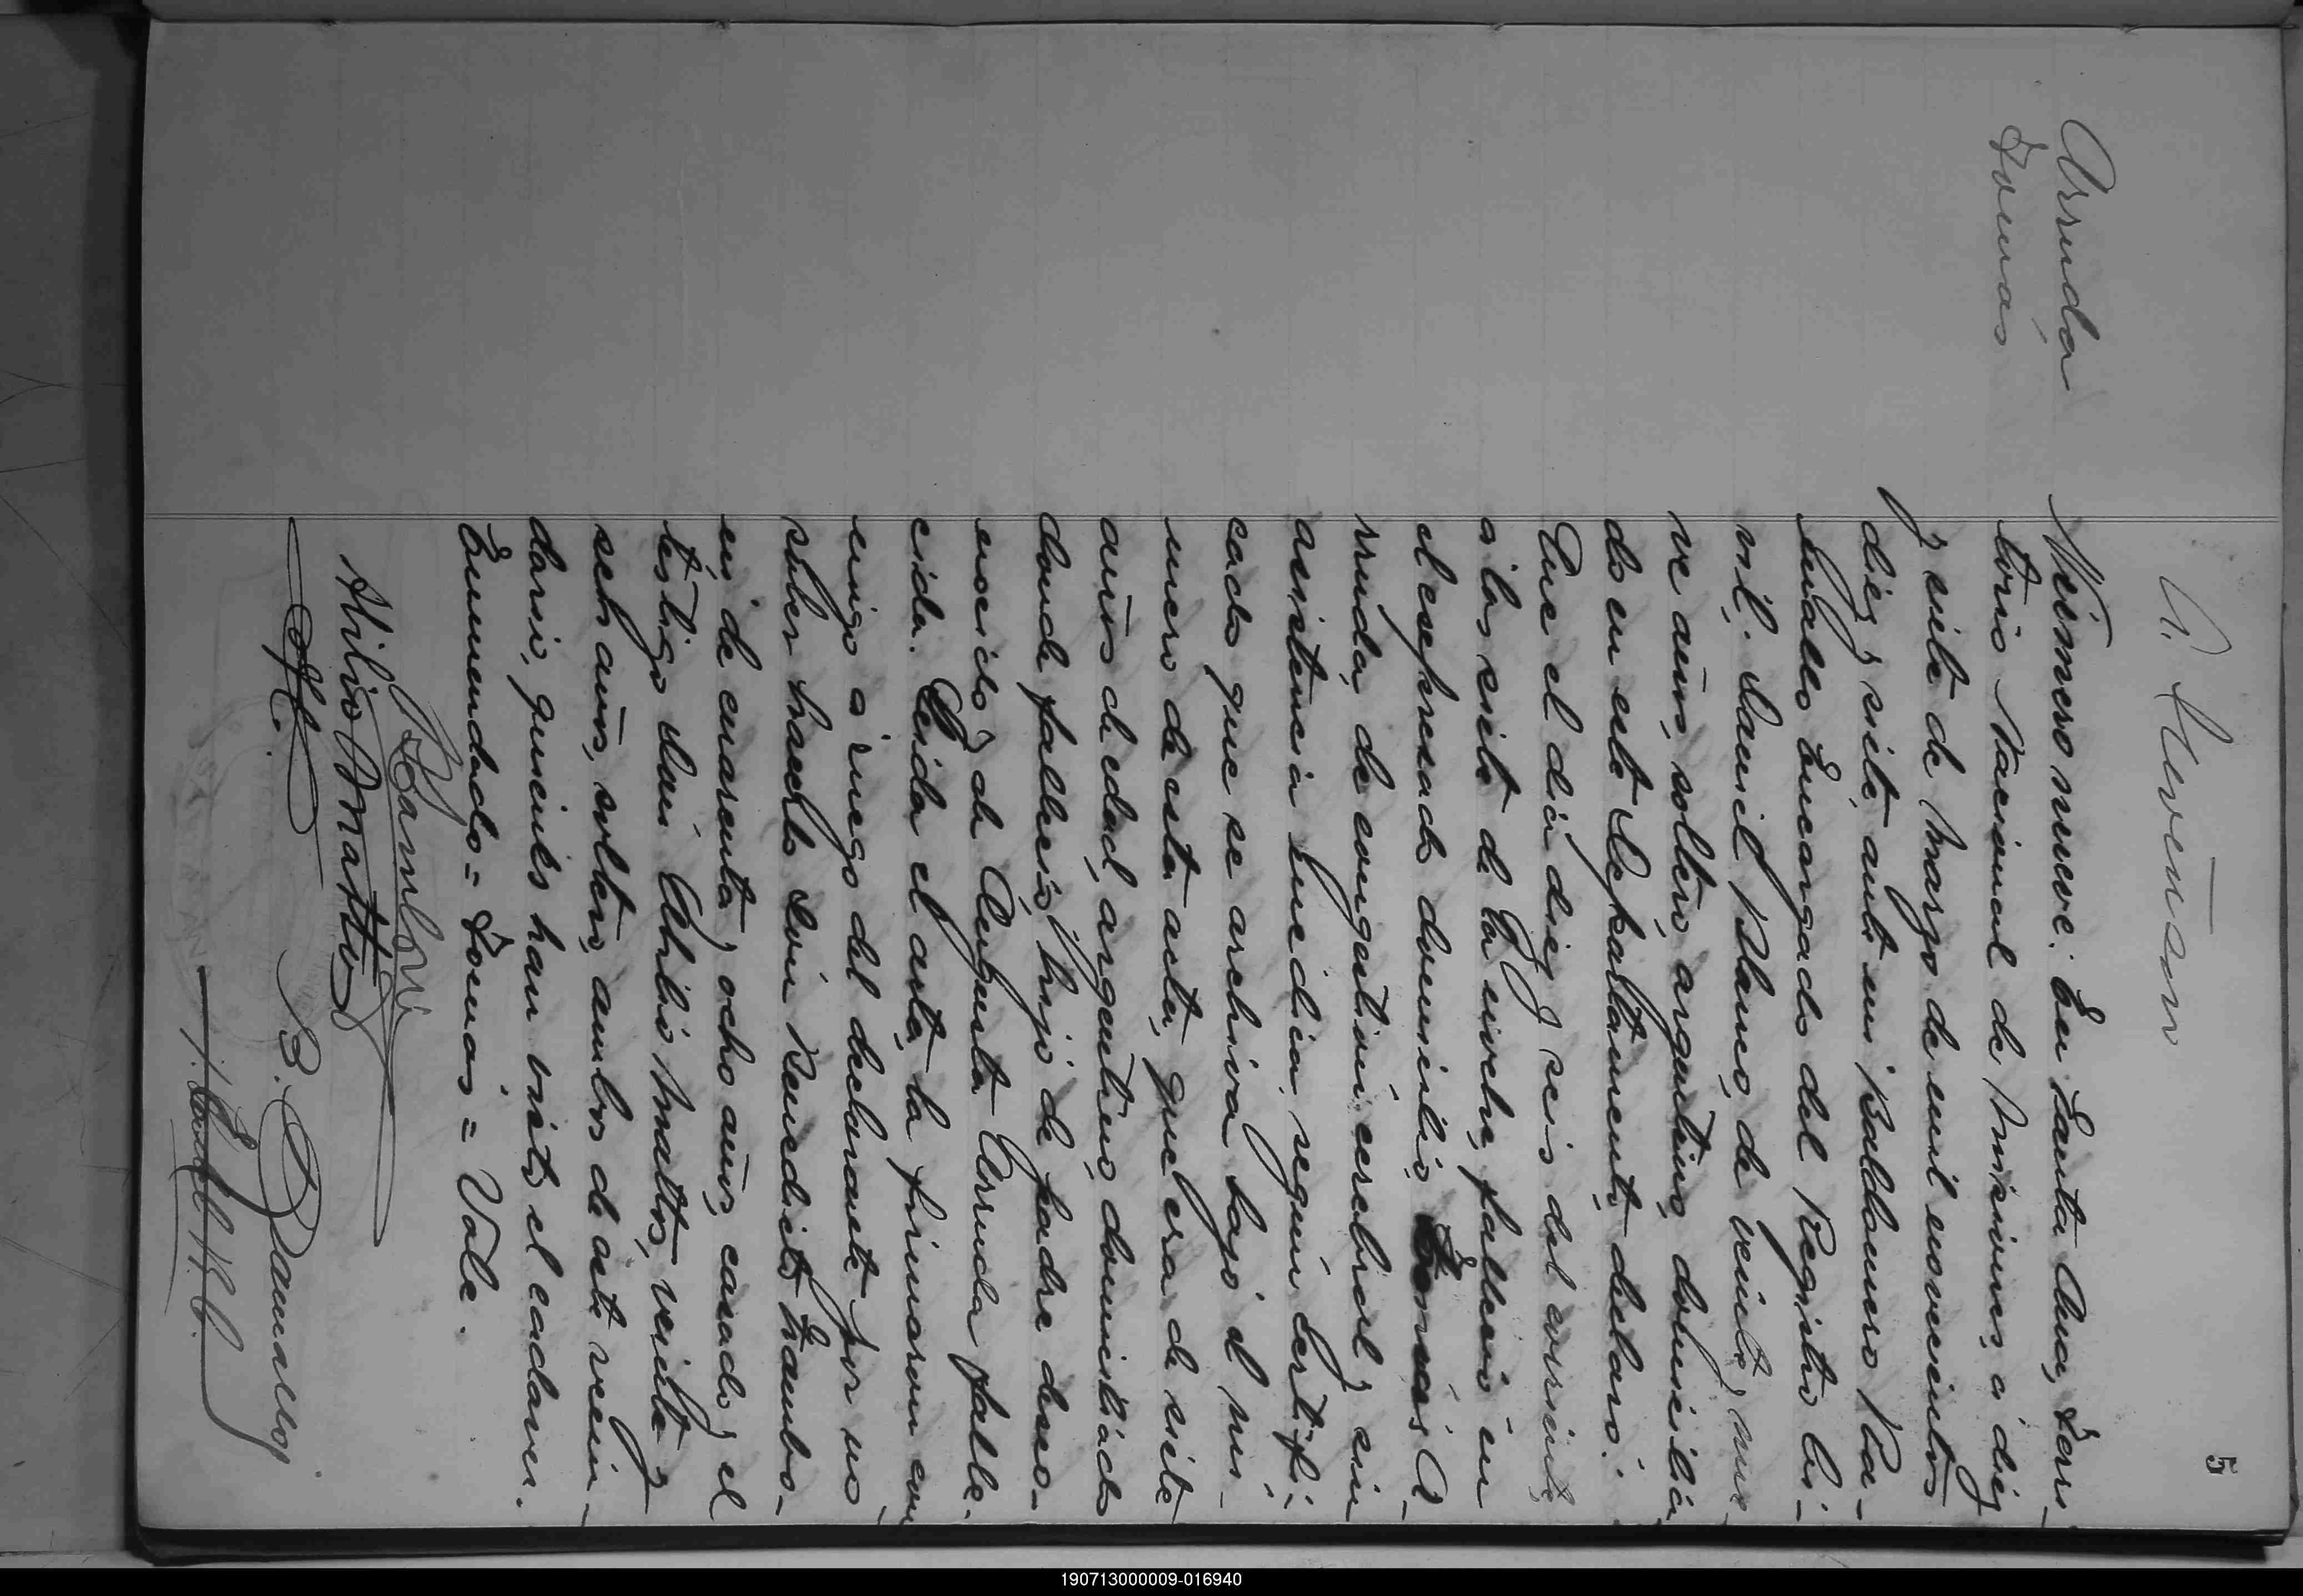 5
Arruda
Tomás
Número nueve: En Santa Ana, Terri-
torio Nacional de Misiones, á diez
y siete de Marzo de mil novecientos
diez y siete, ante mi Baldomero Pa-
Encargado del Registro Ci-
vil: Daniel Blanco, de veinte y nue-
ve años, soltero argentino, domicilia-
do en este Departamento, declaró:
Que el dia diez y seis del corriente
a las siete de la noche, falleció en
el expresado domicilio, Tomás A-
rruda, de congestión cerebral, sin
asistencia medica, según Certifi-
cado que se archiva bajo el nú-
mero de esta acta, que era de siete
años de edad, argentino, domiciliado
donde falleció, hijo de padre desco-
nocido, y de Augusta Arruda falle-
cida. Leida el acta, la firmaron con-
migo á ruego del declarante por no
saber hacerlo Don Benedicto
ni de cuarenta y ocho años, casado, y el
téstigo don Atilio Mattos, veinte y
seis años, soltero, ambos de este vecin-
dario, quienes han visto el cadaver.
Enmendado = Tomás = Vale.
Atilio Mattos
190713000009-016940